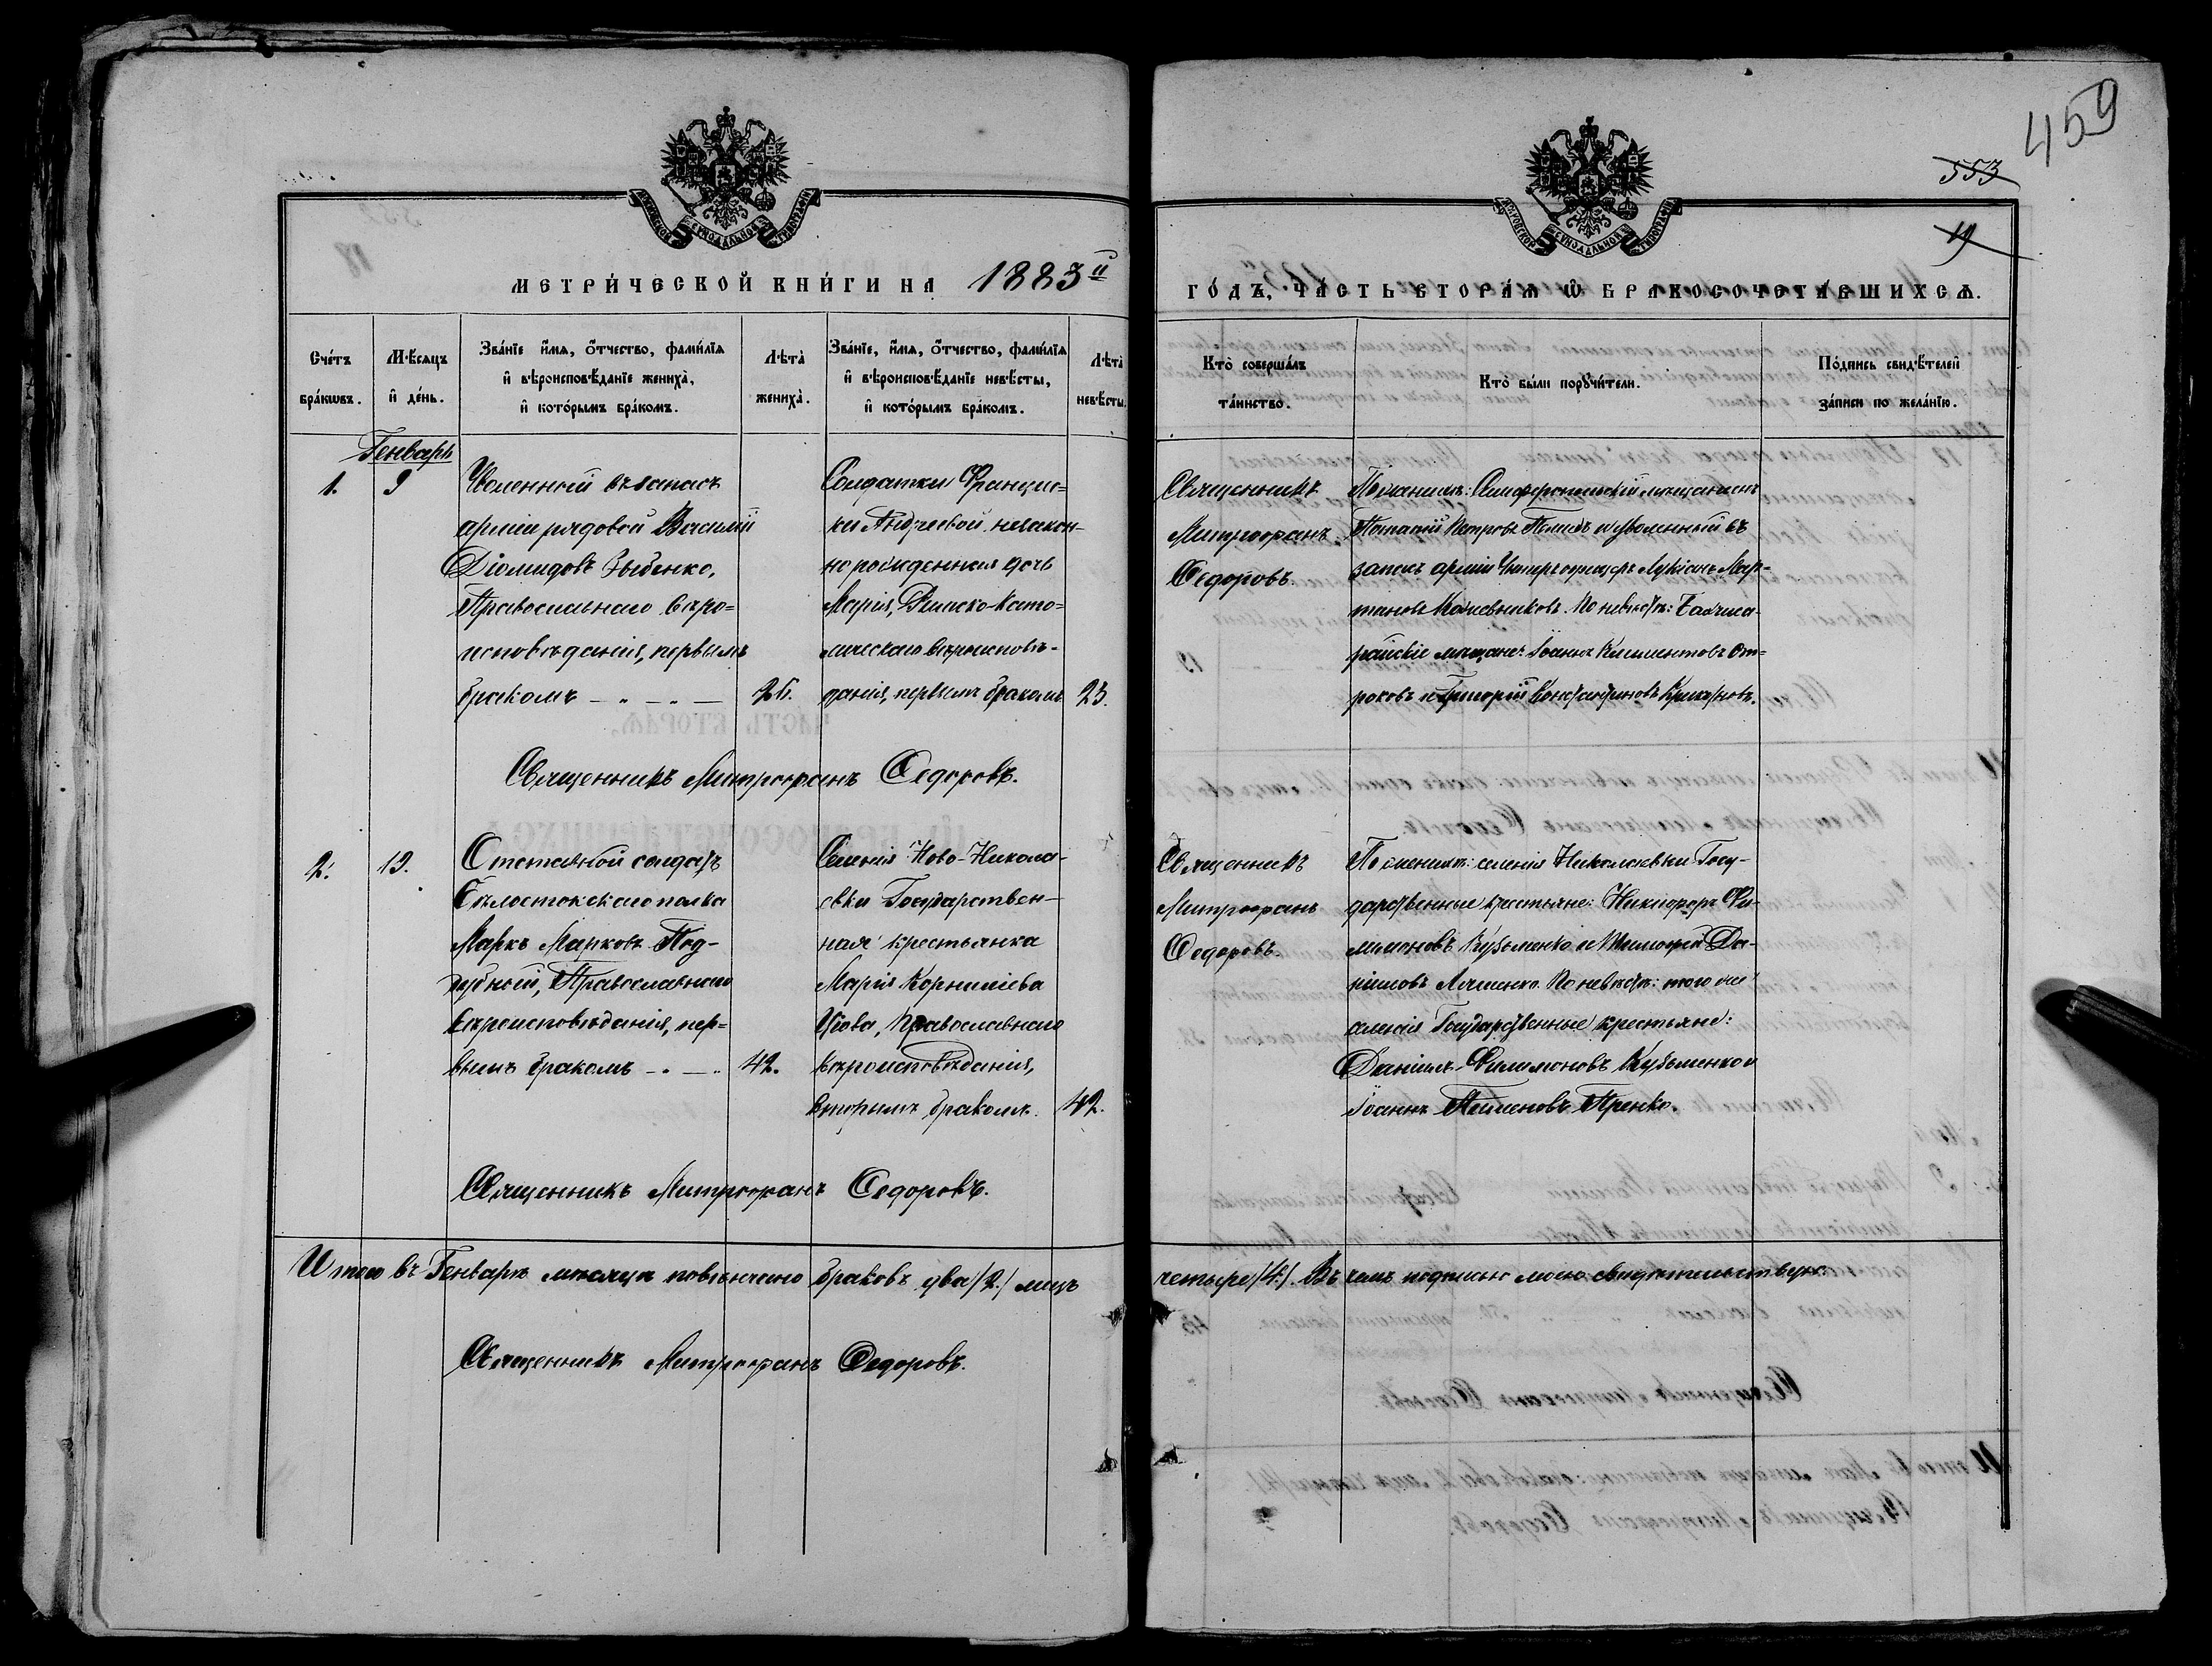 459
553
19
МЕТРИ́ЧЕСКОЙ КНИ́ГИ НА 1883й
ГО́ДЪ, ЧА́СТЬ ВТОРА́Ѧ Ѽ БРАКОСОЧЕТА́ВШИХСѦ.
МОСКОВСКОЙ СѴНОДАЛЬНОЙ ТИПОГРАФІИ
МОСКОВСКОЙ СѴНОДАЛЬНОЙ ТИПОГРАФІИ
Сче́тъ
бра́кѡвъ.
Мѣ́сяцъ
и҆ де́нь.
Зва́нїе и҆́мѧ, ѻ҆́тчество, фамѝлїѧ
и҆ вѣроисповѣ́данїе жениха̀,
и҆ кото́рымъ бра́комъ.
Лѣта̀
жениха̀.
Зва́нїе, и҆́мѧ, ѻ҆́тчество, фамѝлїѧ
и҆ вѣроисповѣ́данїе невѣ́сты,
и҆ кото́рымъ бра́комъ.
Лѣта̀
невѣ́сты.
Кто̀ соверша́лъ
та́инство.
Кто̀ бы́ли порꙋчи́тели.
По́дпись свидѣ́телей
за́писи по жела́нїю.
Генварь
1.
9
Уволенный въ запасъ
арміи рядовой Василій
Діомидовъ Зыбенко,
Православнаго вѣро=
исповѣданія, первымъ
бракомъ — „ — „ —
26.
Солдатки Францис=
ки Андреевой незакон-
норожденная дочь
Марія, Римско-Като=
лическаго вѣроисповѣ-
данія, первымъ бракомъ
23.
Священникъ
Митрофанъ
Ѳедоровъ.
По женихѣ: Симферопольскій мещанинъ
Потапій Петровъ и уволенный въ
запасъ арміи Унтеръ офицеръ Лукіанъ Мар-
тиновъ. По невѣстѣ: Бахчиса-
райскіе мещане: Іоаннъ Климентовъ От-
роковъ и Григорій Константиновъ Крикуновъ.
Священникъ Митрофанъ Ѳедоровъ.
2.
19.
Отставной солдатъ
Бѣлостокскаго полка
Маркъ Марковъ Под-
дубный, Православнаго
вѣроисповѣданія, пер=
вымъ бракомъ —„ —„
42.
Селенія Ново-Никола-
евки Государствен-
ная крестьянка
Марія Корниліева
Православнаго
вѣроисповѣданія,
вторымъ бракомъ.
42.
Священникъ
Митрофанъ
Ѳедоровъ.
По женихѣ: селенія Николаевки Госу-
дарственные крестьяне: Никифоръ Фи-
лимоновъ Кузьменко и Тимофей Да-
ніиловъ Ляшенко. По невѣстѣ: того же
селенія Государственные крестьяне:
Даніилъ Филимоновъ Кузьменко и
Іоаннъ Пименовъ Пренко.
Священникъ Митрофанъ Ѳедоровъ.
Итого въ Генварѣ мѣсяцѣ повѣнчано браковъ два /2./ лицъ четыре /4./. Въ чемъ подписью моею свидѣтельствую
Священникъ Митрофанъ Ѳедоровъ.